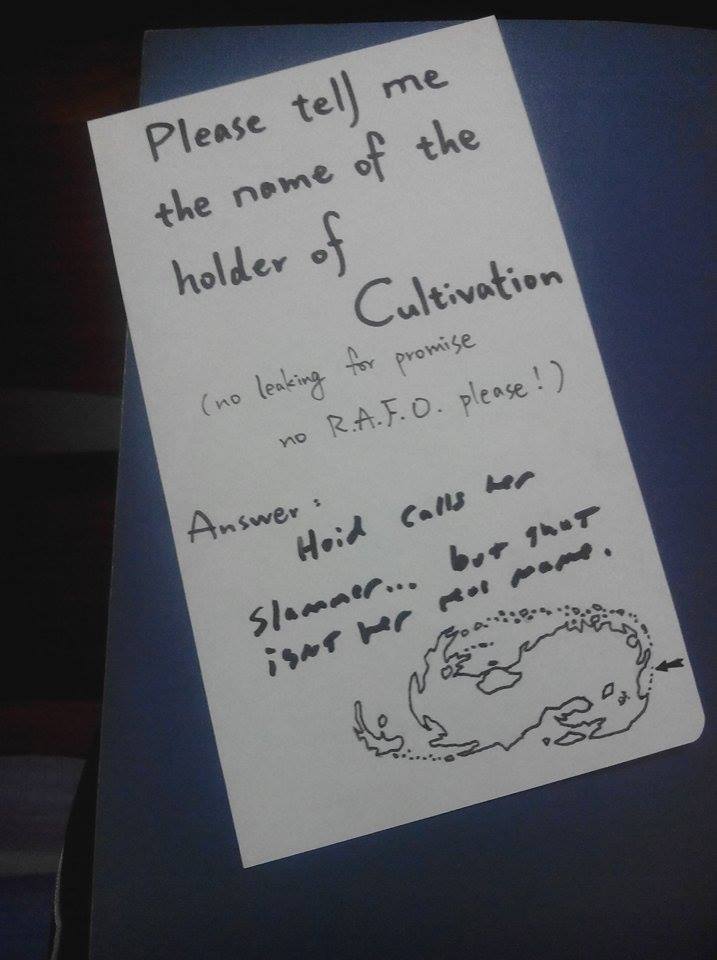 Please tell me
the name of the
holder of
Cultivation
(no leaking for promise
no R.A.F.O. please!)
Answer:
Hoid calls her
Slammer... but that
isnt her real name.